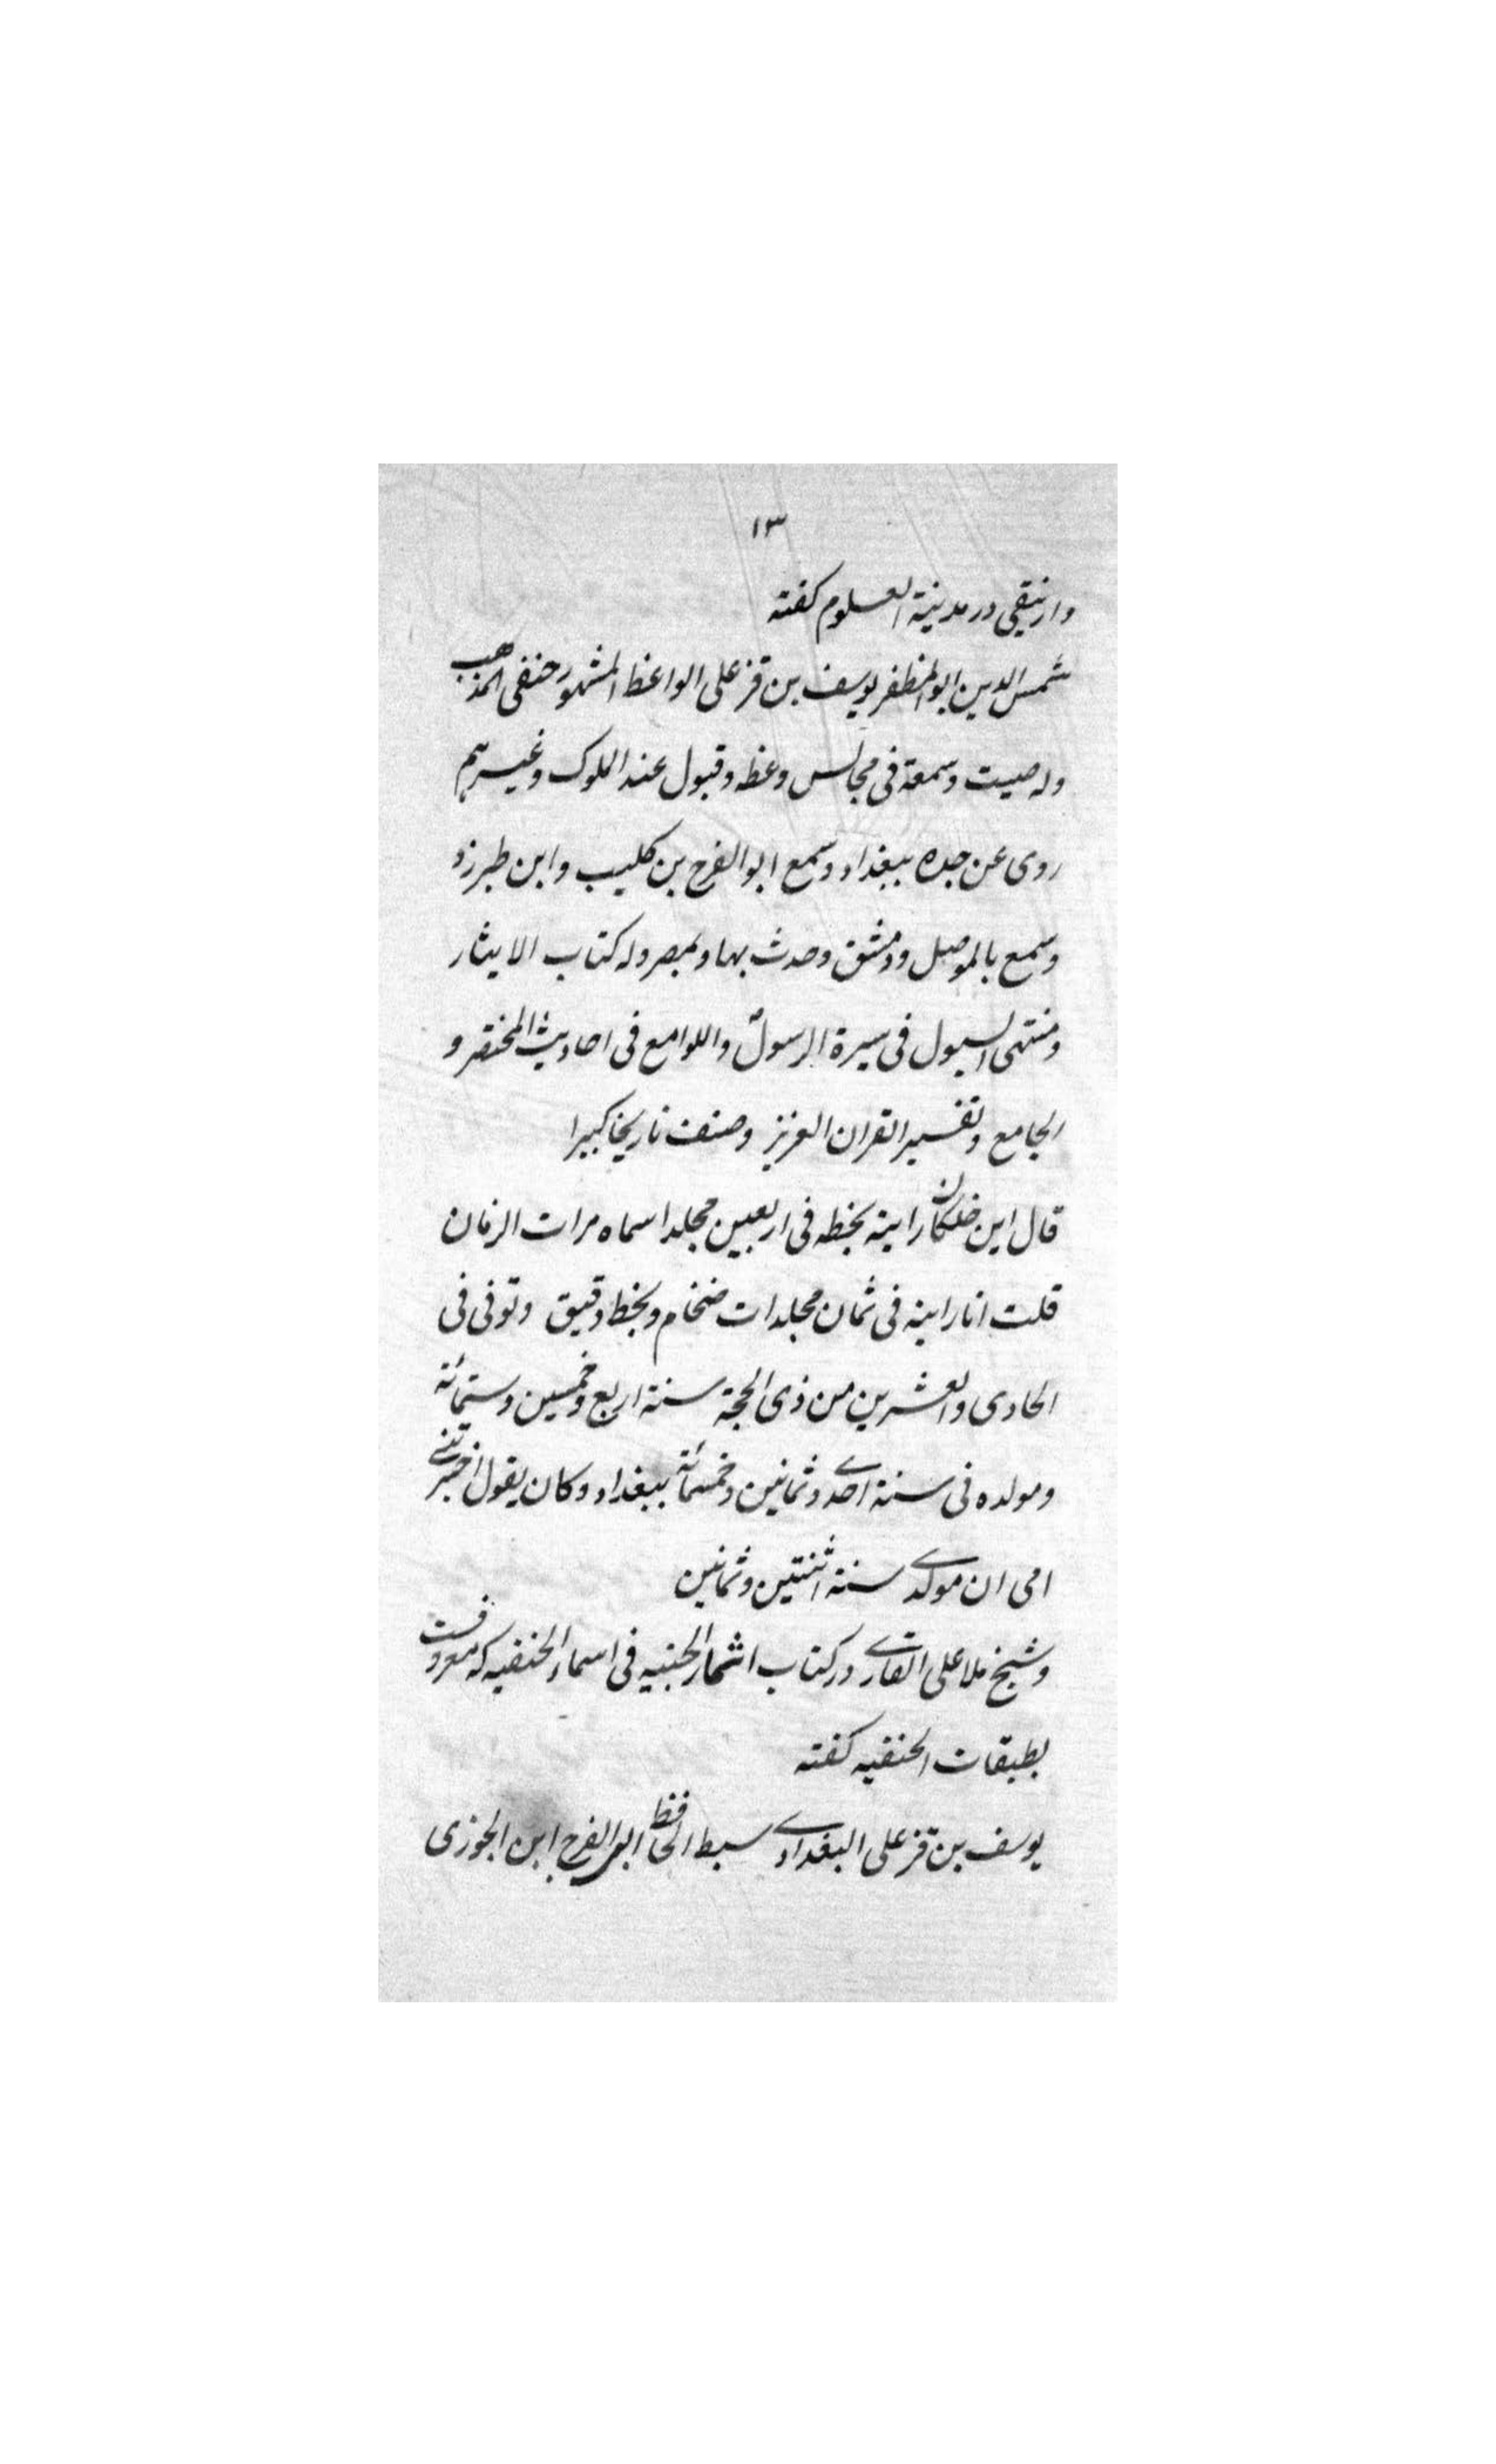 ١٣
وازنیقی در مدینة العلوم کفته
شمس الدین ابوالمظفر یوسف بن قزعلی الواعظ المشهور حنفی المذهب
وله صیت وسمعة فی مجالس وعظه وقبول عند الملوک وغیرهم
روی عن جده ببغداد وسمع ابوالفرج بن کلیب وابن طبرزد
وسمع بالموصل ودمشق وحدث بها وبمصر وله کتاب الایثار
ومنتهی السول فی سیرة الرسول واللوامع فی احادیث المختصر و
الجامع وتفسیر القران العزیز وصنف تاریخا کبیرا
قال ابن خلکان رایته بخطه فی اربعین مجلدا سماه مرات الزمان
قلت انا رایته فی ثمان مجلدات ضخام وبخط دقیق وتوفی فی
الحادی والعشرین من ذی الحجة سنة اربع وخمسین وستمائة
ومولده فی سنة احدی وثمانین وخمسمائة ببغداد وکان یقول اخبرتنی
امی ان مولدی سنة اثنتین وثمانین
وشیخ ملا علی القاری در کتاب اثمار الجنیه فی اسماء الحنفیه که معروفست
بطبقات الحنفیه کفته
یوسف بن قزعلی البغدادی سبط الحافظ ابی الفرج ابن الجوزی